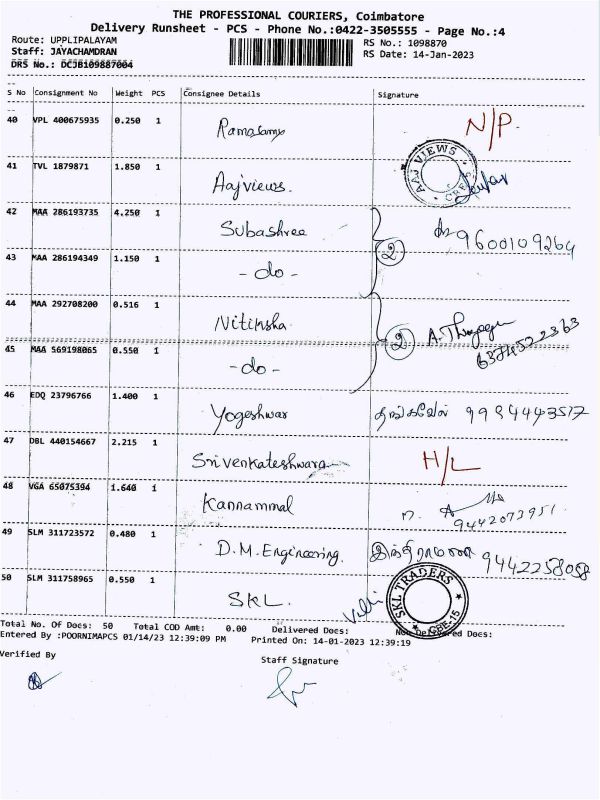 THE PROFESSIONAL COURIERS, Coimbatore
Delivery Runsheet - PCS - Phone No.:0422-3505555 - Page No.:4
Route: UPPLIPALAYAM
Staff: JAYACHAMDRAN
DRS No.: DCJB109887004
RS No.: 1098870
RS Date: 14-Jan-2023
S No Consignment No Weight PCS Consignee Details Signature
40 VPL 400675935 0.250 1 Ramasamy N/P.
41 TVL 1879871 1.850 1 Aajviews. AAJ VIEWS
42 MAA 286193735 4.250 1 Subashree 9600109264
43 MAA 286194349 1.150 1 -do- 2
44 MAA 292708200 0.516 1 Nitinsha
45 MAA 569198065 0.550 1 -do- 2 6374522363
46 EDQ 23796766 1.400 1 Yogeshwar தங்கவேல் 9994443517
47 DBL 440154667 2.215 1 Srivenkateshwara H/L
48 VGA 65075394 1.640 1 Kannammal 9442073951.
49 SLM 311723572 0.480 1 D.M.Engineering. 9442258058
50 SLM 311758965 0.550 1 SKL. SKL TRADERS CBE-15
Total No. Of Docs: 50 Total COD Amt: 0.00 Delivered Docs: Not Delivered Docs:
Entered By :POORNIMAPCS 01/14/23 12:39:09 PM Printed On: 14-01-2023 12:39:19
Verified By Staff Signature